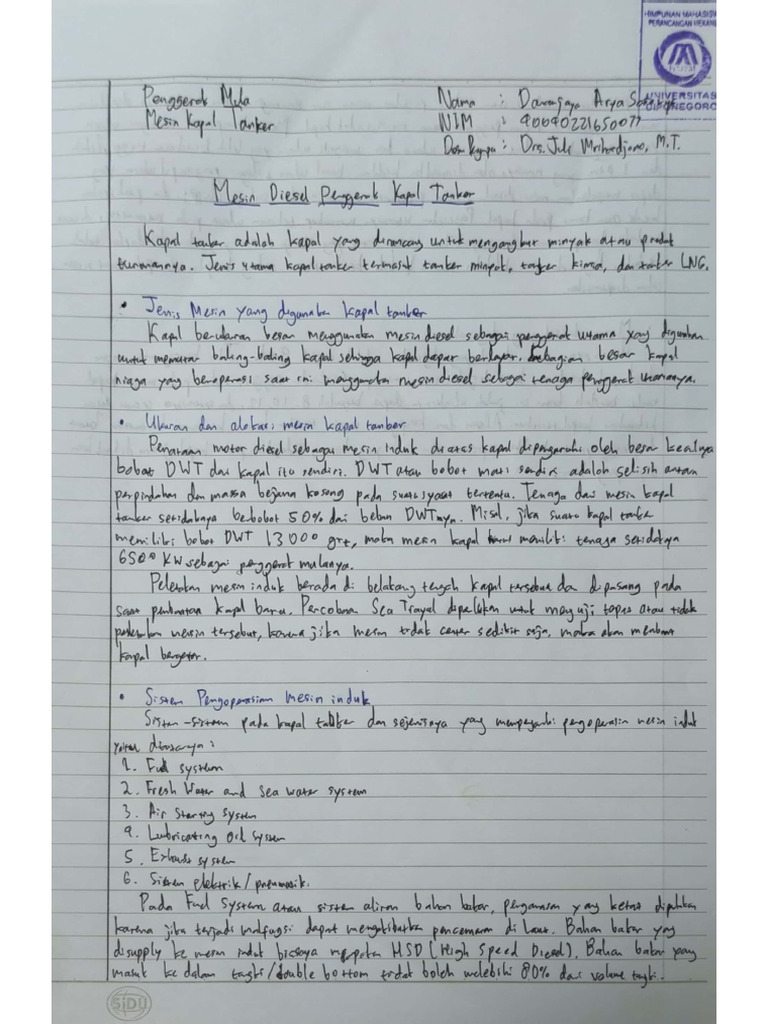 HIMPUNAN MAHASISWA
PERANCANGAN MEKANIK
UNIVERSITAS
DIPONEGORO
Penggerak Mula
Mesin Kapal Tanker
Nama : Arya
NIM : 40040221650077
Drs. Juli Mrihardjono, M.T.
Mesin Diesel Penggerak Kapal Tanker
Kapal tanker adalah kapal yang dirancang untuk mengangkur minyak atau produk
turunannya. Jenis utama kapal tanker termasuk tanker minyak, tanker kimia, dan tanker LNG.
• Jenis Mesin yang digunakan kapal tanker
Kapal berukuran besar menggunakan mesin diesel sebagai penggerak utama yang digunakan
untuk memutar baling-baling kapal sehingga kapal dapat berlayar. Sebagian besar kapal
niaga yang beroperasi saat ini menggunakan mesin diesel sebagai tenaga penggerak utamanya.
• Ukuran dan alokasi mesin kapal tanker
Penataan motor diesel sebagai mesin induk diatas kapal dipengaruhi oleh besar kecilnya
bobot DWT dari kapal itu sendiri. DWT atau bobot mati sendiri adalah selisih antara
perpindahan dan massa bejana kosong pada suatu syarat tertentu. Tenaga dari mesin kapal
tanker setidaknya berbobot 50% dari beban DWTnya. Misal, jika suatu kapal tanker
memiliki bobot DWT 13000 grt, maka mesin kapal memiliki tenaga setidaknya
6500 KW sebagai penggerak mulanya.
Peletakan mesin induk berada di belakang tengah kapal tersebut dan dipasang pada
saat pembuatan kapal baru. Percobaan Sea Trayal diperlukan untuk menguji tepat atau tidak
peletakan mesin tersebut, karena jika mesin tidak center sedikit saja, maka akan membuat
kapal bergetar.
• Sistem Pengoperasian mesin induk
Sistem-sistem pada kapal tanker dan sejenisnya yang mempengaruhi pengoperasian mesin induk
yaitu diantaranya :
1. Fuel system
2. Fresh Water and Sea water system
3. Air Starting system
4. Lubricating Oil System
5. Exhaust system
6. Sistem elektrik/pneumatik.
Pada Fuel System atau sistem aliran bahan bakar, pengawasan yang ketat diperlukan
karena jika terjadi malfungsi dapat mengakibatkan pencemaran di Laut. Bahan bakar yang
disupply ke mesin induk biasanya merupakan HSD (High Speed Diesel), Bahan bakar yang
masuk ke dalam tangki/double bottom tidak boleh melebihi 80% dari volume tangki.
SiDU